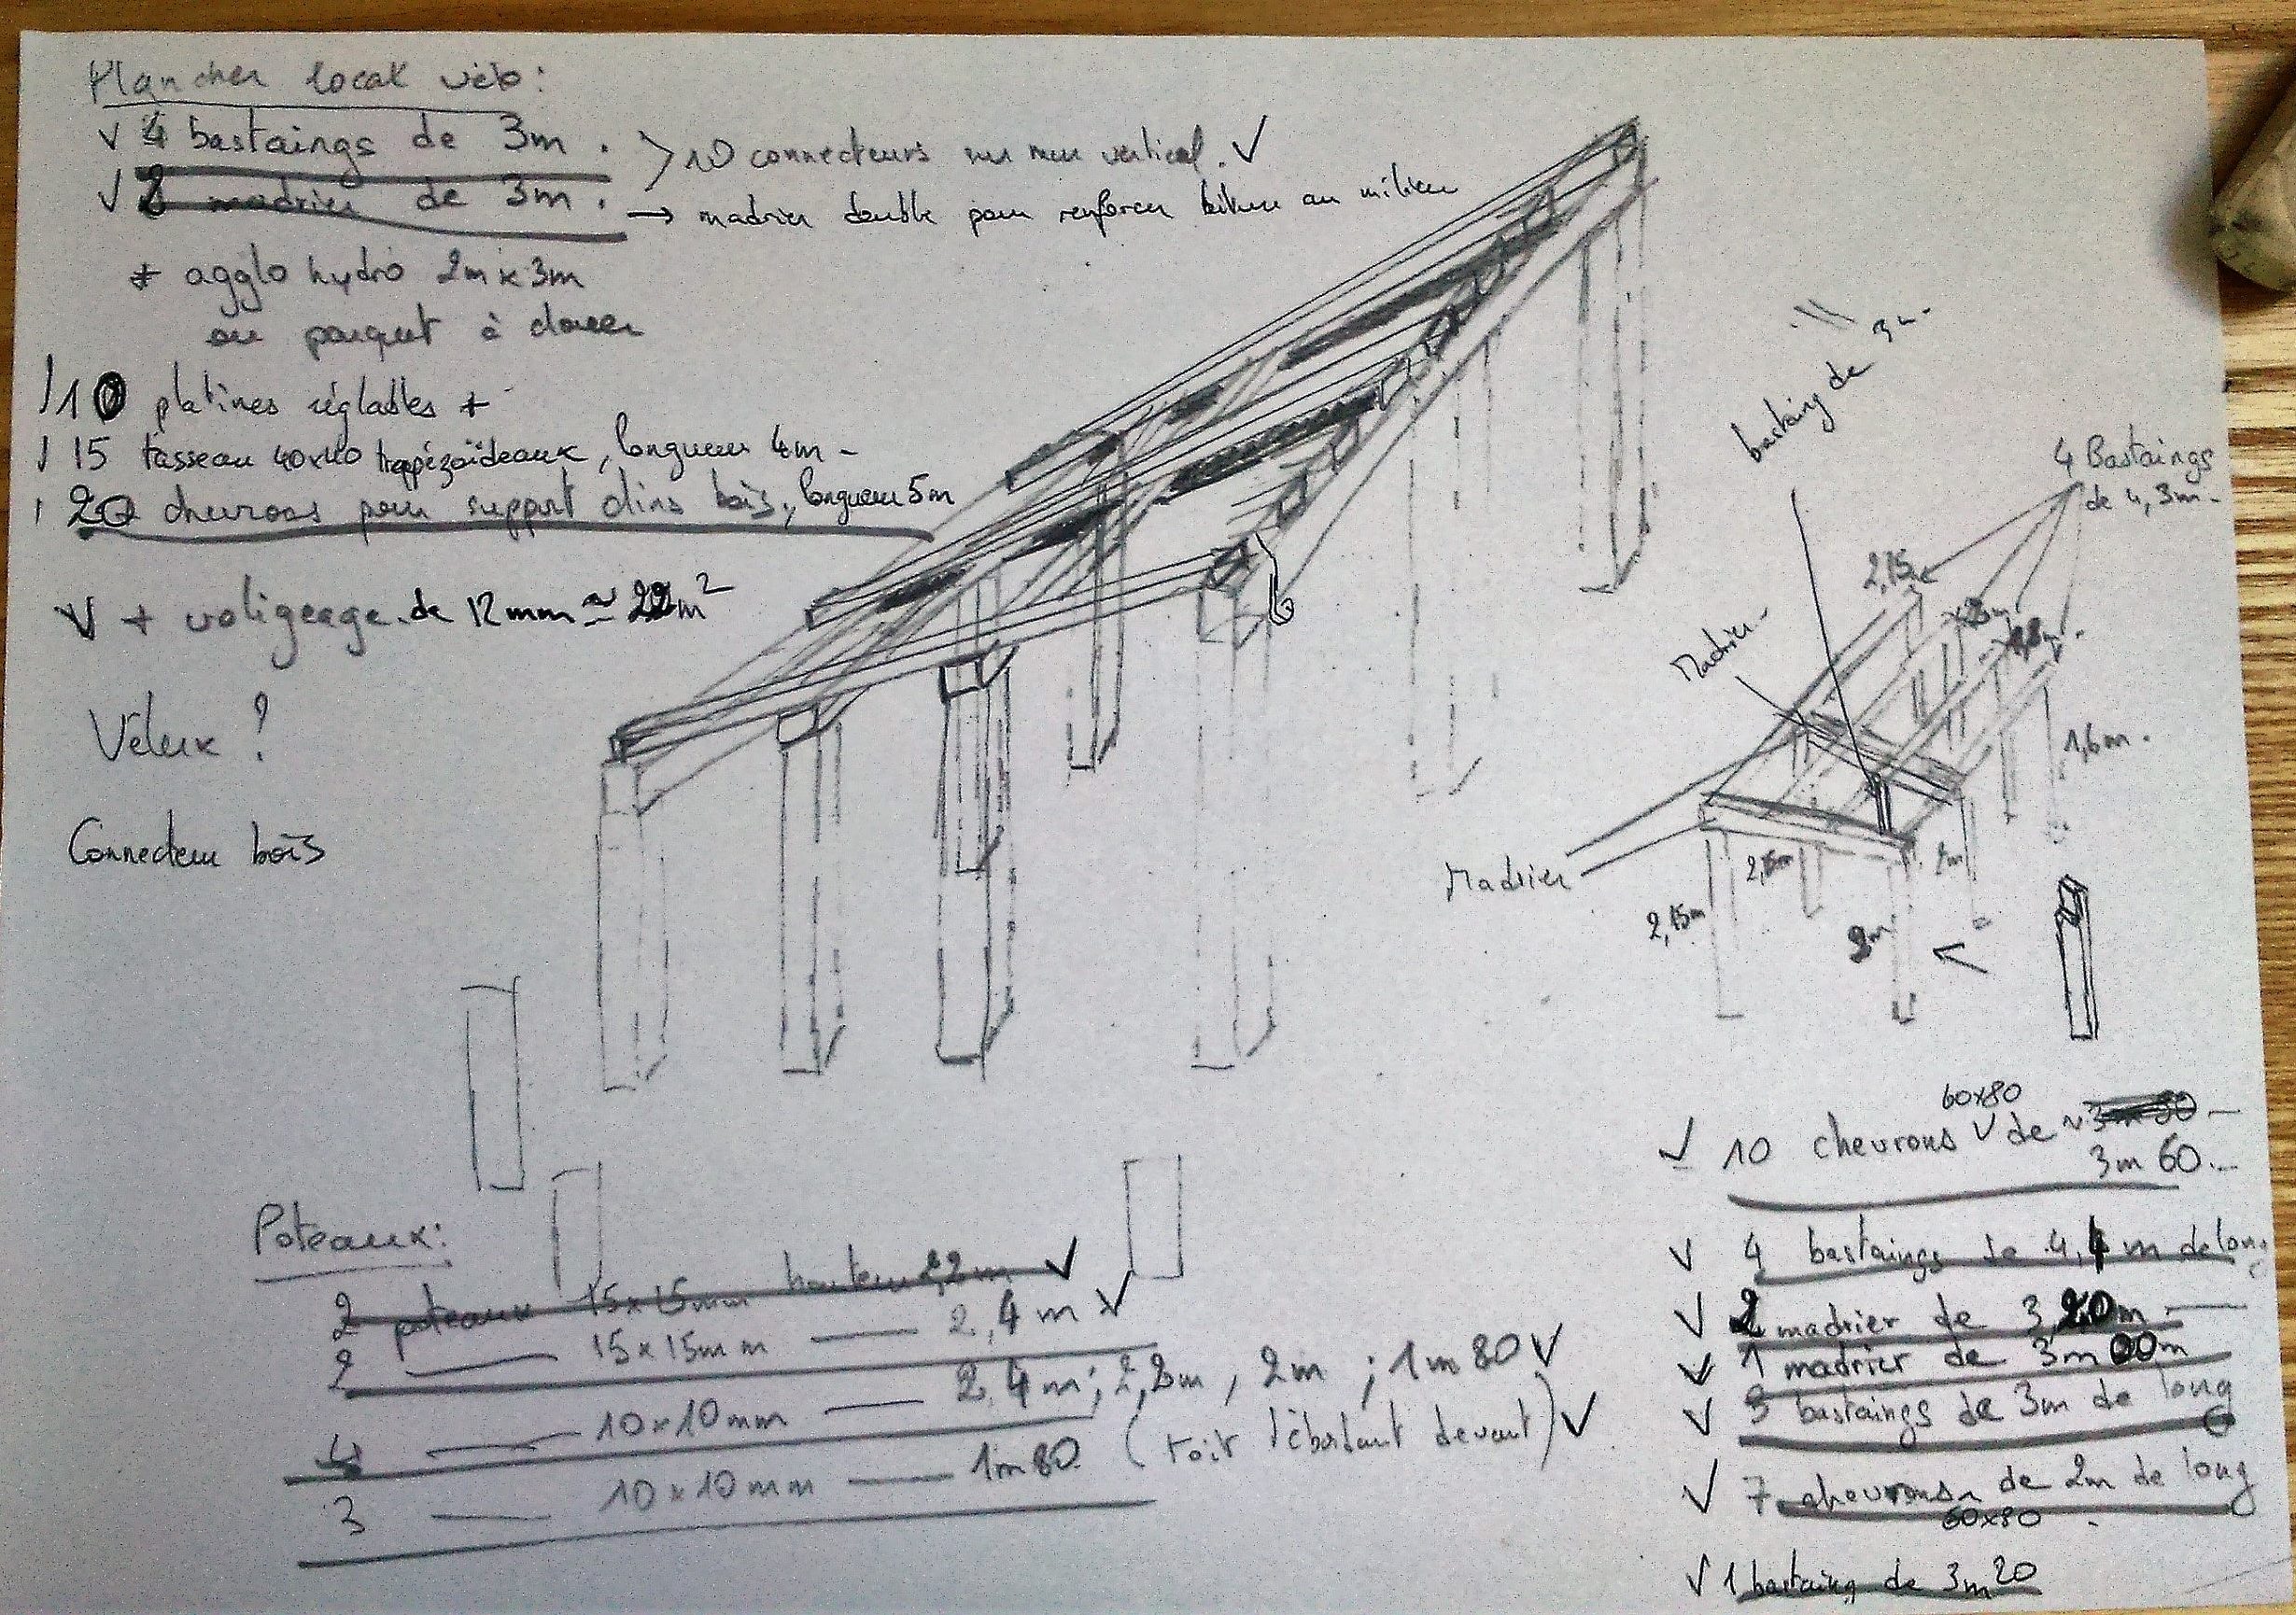 Plancher local vélo :
√ 4 bastaings de 3m .
√ 2 madrier de 3m .
> 10 connecteurs sur mur vertical. √
→ madrier double pour renforcer toiture au milieu
+ agglo hydro 2m x 3m
ou parquet à clouer
10 platines réglables +
15 tasseau 40x40 trapézoïdeaux, longueur 4m -
20 chevrons pour support clins bois, longueur 5m
√ + voligeage de 12mm ≃ 22m²
Vélux ?
Connecteur bois
bastaing de 3m.
4 Bastaings
de 4,3m -
2,15
Madrier -
1,6m .
Madrier
2,15m
2m
2,15m
2m
Poteaux :
2 poteaux 15x15mm hauteur 2,2m √
2 —— 15x15mm —— 2,4m √
4 —— 10x10mm —— 2,4m ; 2,2m , 2m ; 1m80 √
3 —— 10x10mm —— 1m80 (toit débordant devant) √
60x80
√ 10 chevrons √ de ~
3m60 -
√ 4 bastaings de 4,4m de long
√ 2 madrier de 3,20m -
√ 1 madrier de 3m00m
√ 3 bastaings de 3m de long
√ 7 chevrons de 2m de long
60x80
√ 1 bastaing de 3m20